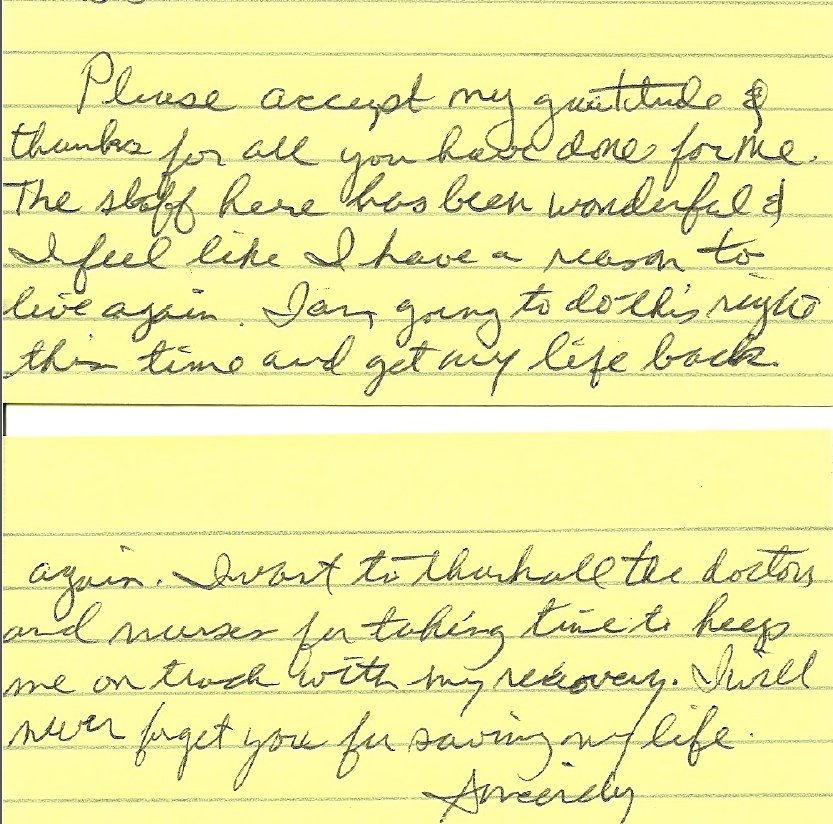 Please accept my gratitude &
thanks for all you have done for me.
The staff here has been wonderful &
I feel like I have a reason to
live again. I am going to do this right
this time and get my life back
again. I want to thank all the doctors
and nurses for taking time to keep
me on track with my recovery. I will
never forget you for saving my life.
Sincerely